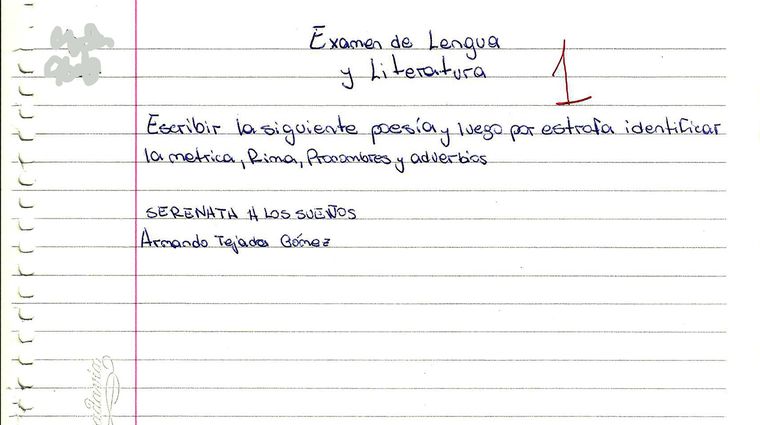 Examen de Lengua
y Literatura
1
Escribir la siguiente poesía y luego por estrofa identificar
la metrica, Rima, Pronombres y adverbios
SERENATA A LOS SUEÑOS
Armando Tejada Gómez